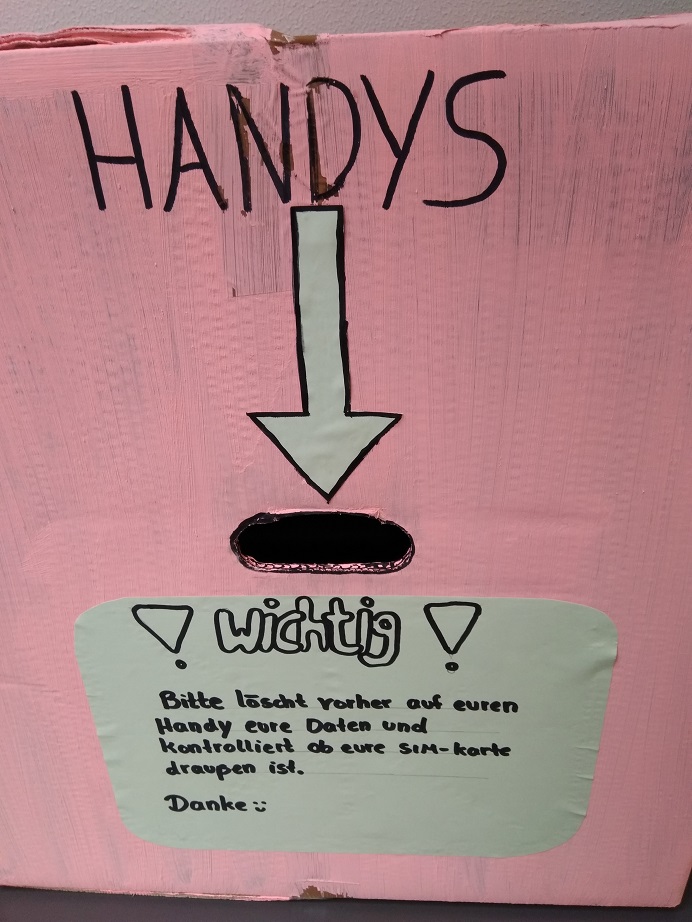 HANDYS
! wichtig !
Bitte löscht vorher auf euren
Handy eure Daten und
kontrolliert ob eure SIM-karte
draußen ist.
Danke :)